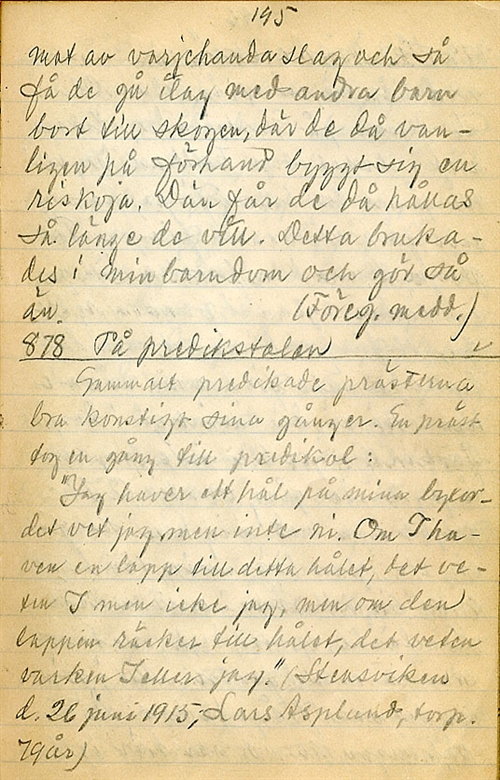 195
mat av varjehanda slag och så
få de gå i lag med andra barn
bort till skogen, där de då van-
ligen på förhand byggt sig en
riskoja. Där får de då hållas
så länge de vill. Detta bruka-
des i min barndom och gör så
än. (Föreg. medd.)
878 På predikstolen
Gammalt predikade prästerna
bra konstigt sina gånger. En präst
tog en gång till predikot:
"Jag haver ett hål på mina byxor-
det vet jag, men inte ni. Om I ha-
ven en lapp till detta hålet, det ve-
ten I men icke jag, men om den
lappen räcker till hålet, det veten
varken I eller jag." (Stensviken
d. 26 juni 1915, Lars Asplund, torp.
79 år)